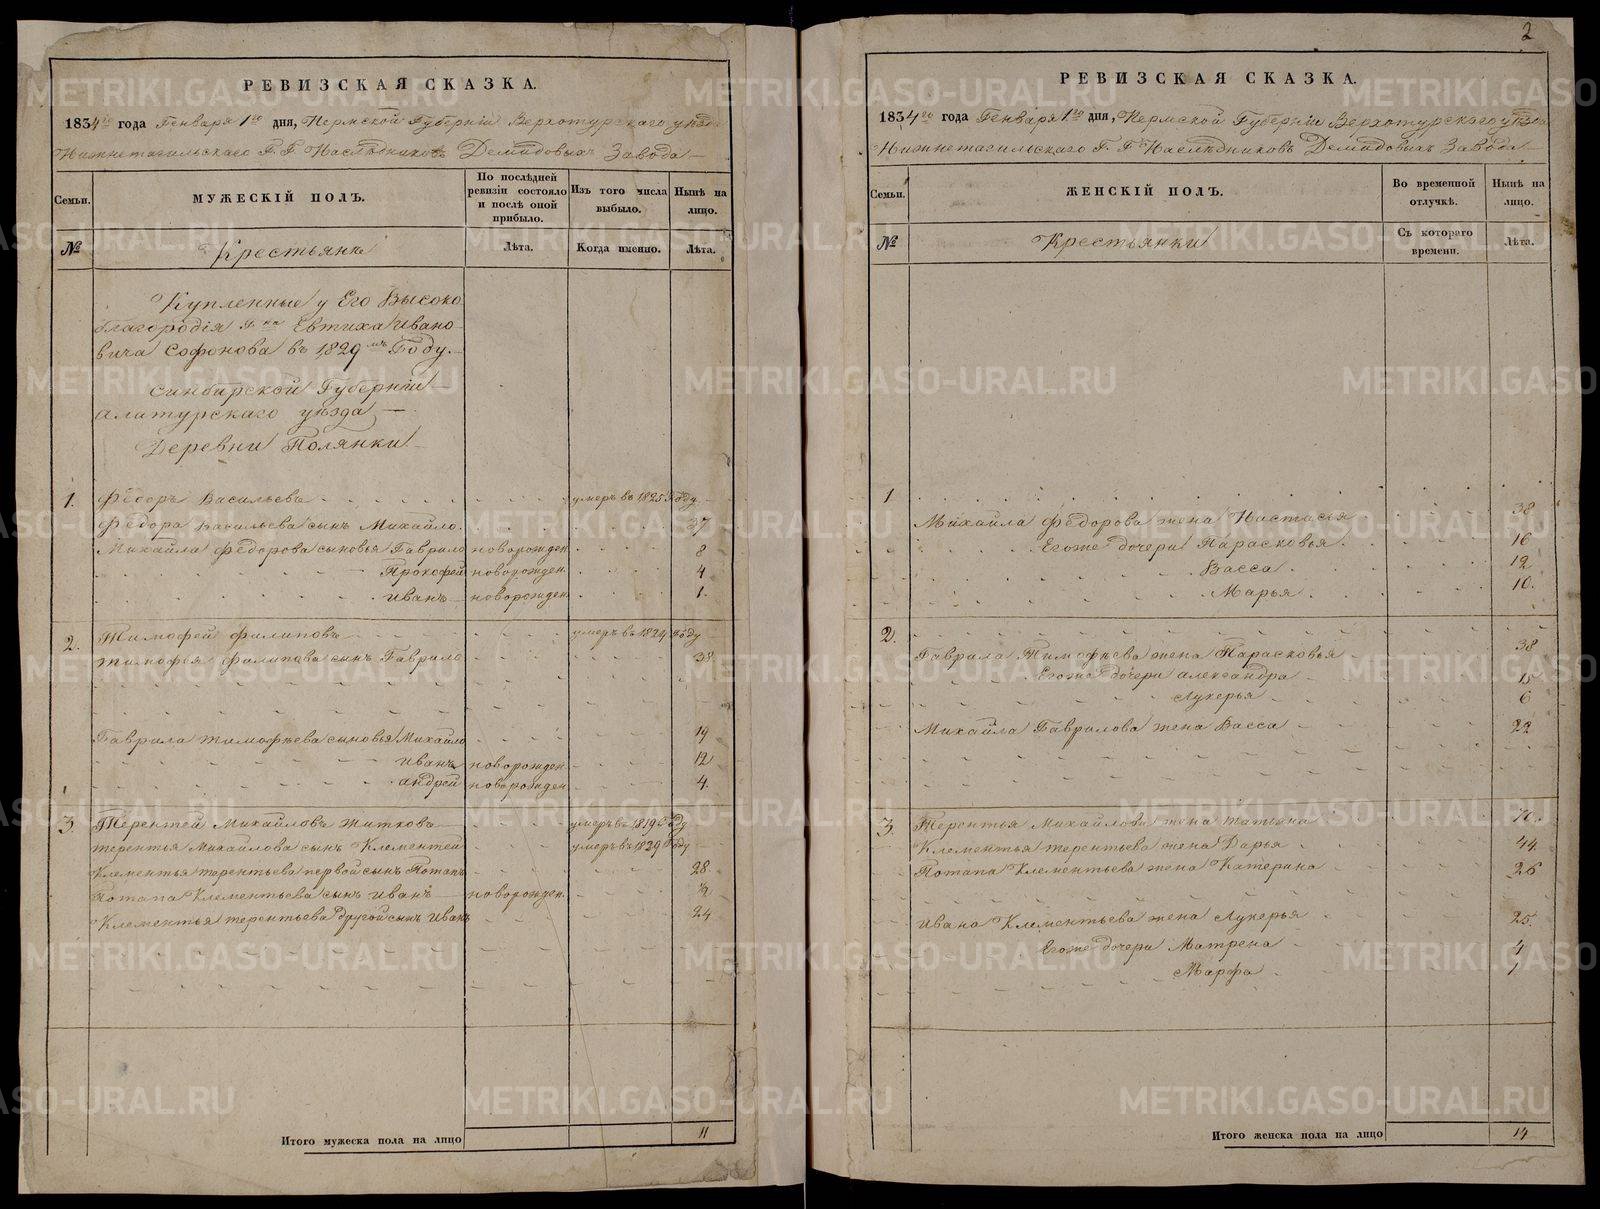 РЕВИЗСКАЯ СКАЗКА.
1834го года Генваря 1го дня, Пермской Губернiи Верхотурскаго уѣзда
Нижнетагильскаго Г. Г. Наслѣдниковъ Демидовыхъ Завода
Семьи.
МУЖЕСКІЙ ПОЛЪ.
По послѣдней ревизіи состояло и послѣ оной прибыло.
Изъ того числа выбыло.
Нынѣ на лицо.
№
Крестьянъ
Лѣта.
Когда именно.
Лѣта.
Купленные у Его Высоко
благородія Гна Евтиха Ивано
вича Софонова въ 1829мъ Году.
Синбирской Губерніи
Алатурскаго уѣзда
Деревни Полянки
1. Фёдоръ Васильевъ умеръ въ 1825 Году
Фёдора Васильева сынъ Михайло. 37
Михайла Фёдорова сыновья Гаврило новорожден. 8
Прокофей новорожден. 4
Иванъ новорожден. 1.
2. Тимофей Филиповъ умеръ въ 1824 Году
Тимофея Филипова сынъ Гаврило 38
Гаврила Тимофѣева сыновья Михайло 19
Иванъ новорожден. 12
Андрей новорожден. 4.
3. Терентей Михайловъ Житковъ умеръ въ 1819 Году
Терентья Михайлова сынъ Клементей умеръ въ 1829 Году
Клементья Терентьева первой сынъ Потапъ 28
Потапа Клементьева сынъ Иванъ новорожден. ½
Клементья Терентьева другой сынъ Иванъ 24
Итого мужеска пола на лицо 11
2
РЕВИЗСКАЯ СКАЗКА.
1834го года Генваря 1го дня, Пермской Губернiи Верхотурскаго уѣзда
Нижнетагильскаго Г. Г. Наслѣдниковъ Демидовыхъ Завода
Семьи.
ЖЕНСКІЙ ПОЛЪ.
Во временной отлучкѣ.
Нынѣ на лицо.
№
Крестьянки
Съ котораго времени.
Лѣта.
1
Михайла Фёдорова жена Настасья 38
Егоже дочери Парасковья 16
Васса 12
Марья 10.
2.
Гаврила Тимофѣева жена Парасковья 38
Егоже дочери Александра 15
Лукерья 6
Михайла Гаврилова жена Васса 22
3. Терентья Михайлова жена Татьяна 70.
Клементья Терентьева жена Дарья 44
Потапа Клементьева жена Катерина 26
Ивана Клементьева жена Лукерья 25.
Егоже дочери Матрена 4
Марфа 1
Итого женска пола на лицо 14
METRIKI.GASO-URAL.RU